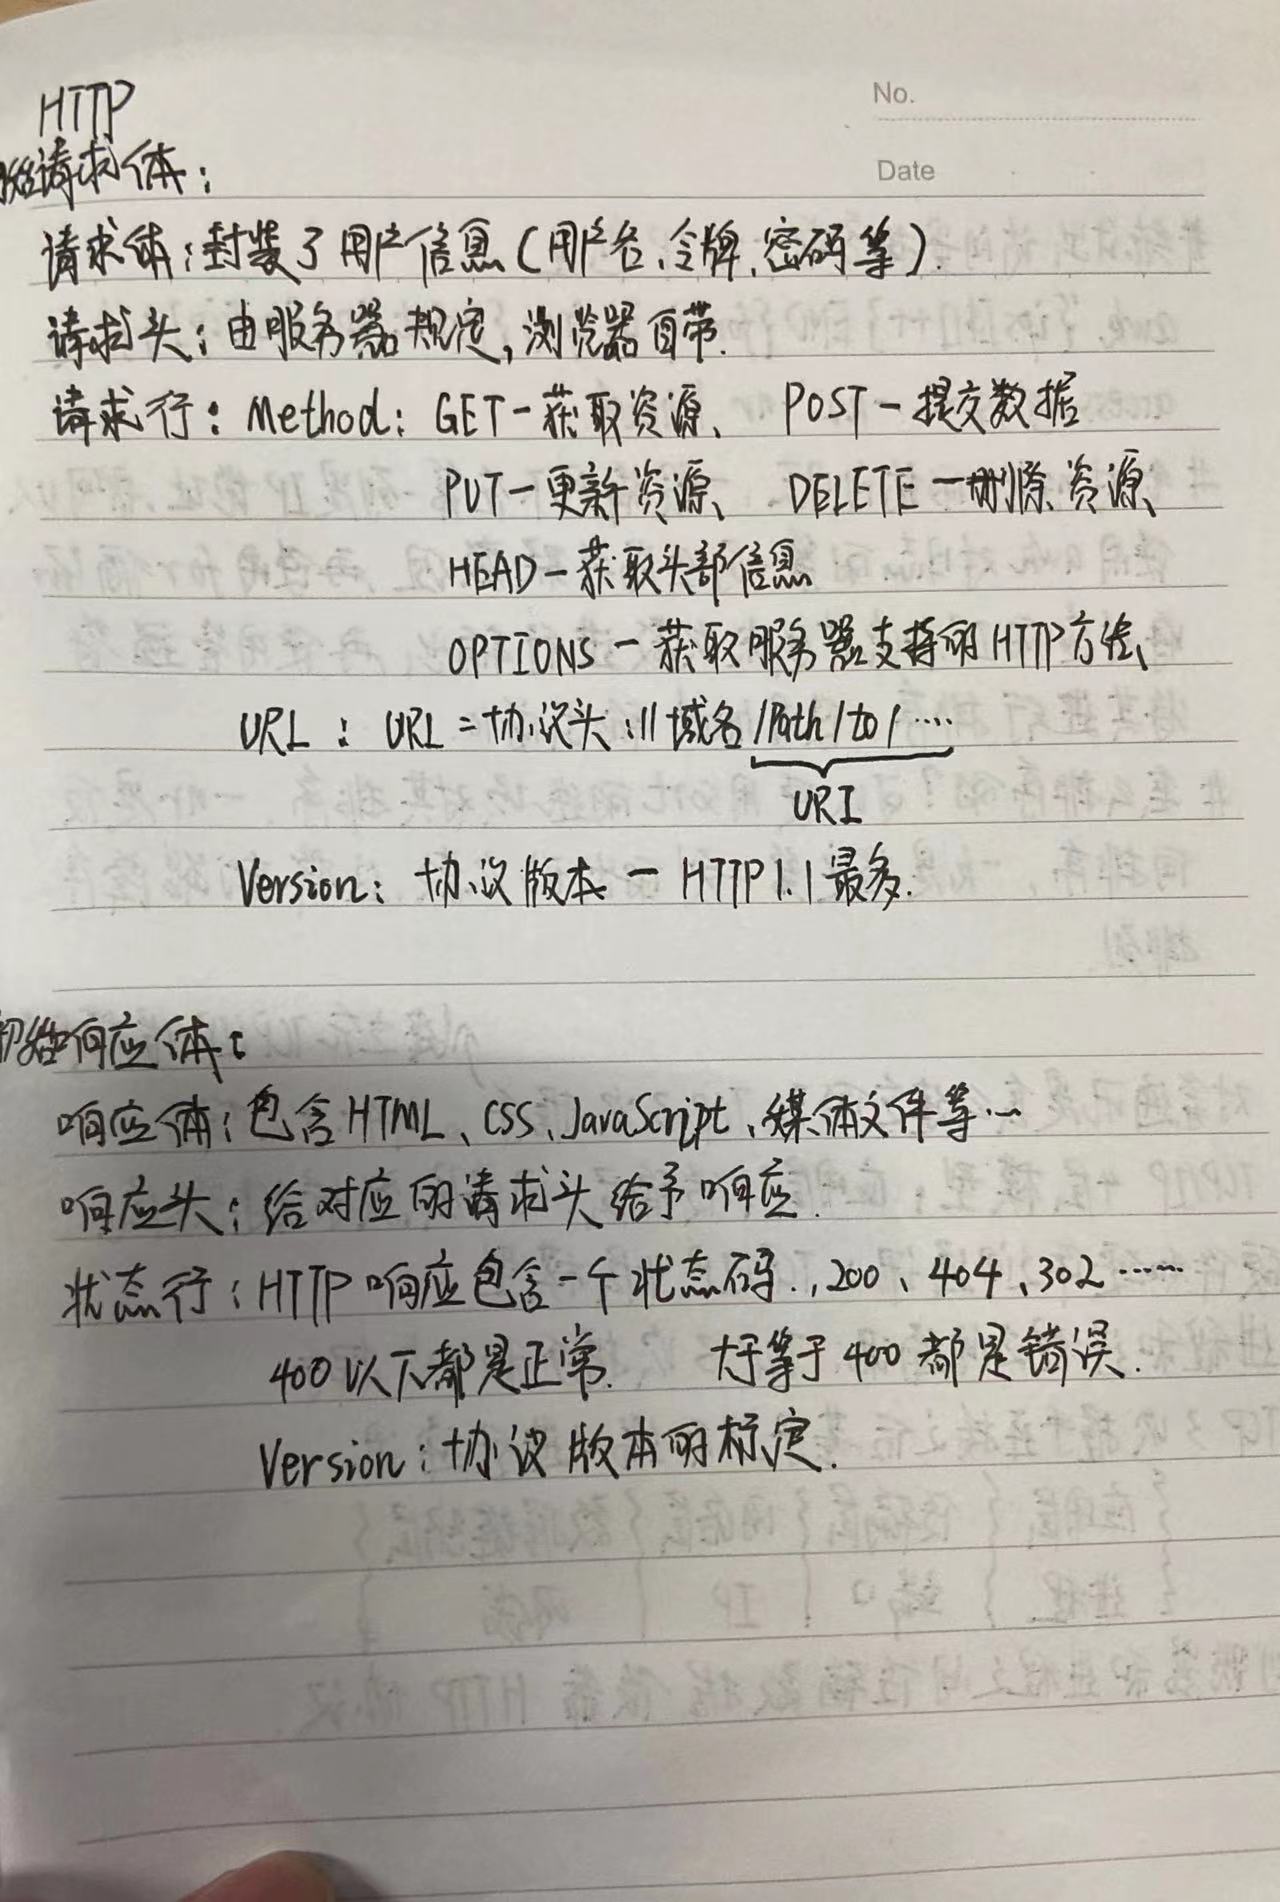 No.
Date
HTTP
初始请求体：
请求体：封装了用户信息（用户名、令牌、密码等）.
请求头：由服务器规定，浏览器自带.
请求行：Method：GET－获取资源、 POST－提交数据
PUT－更新资源、 DELETE－删除资源、
HEAD－获取头部信息
OPTIONS－获取服务器支持的HTTP方法、
URL：URL＝协议头://域名/Path/to/····
URI
Version：协议版本－HTTP1.1最多.
初始响应体：
响应体：包含HTML、CSS、JavaScript、媒体文件等…
响应头：给对应的请求头给予响应.
状态行：HTTP响应包含一个状态码.，200、404、302······
400以下都是正常. 大于等于400都是错误.
Version：协议版本的标定.